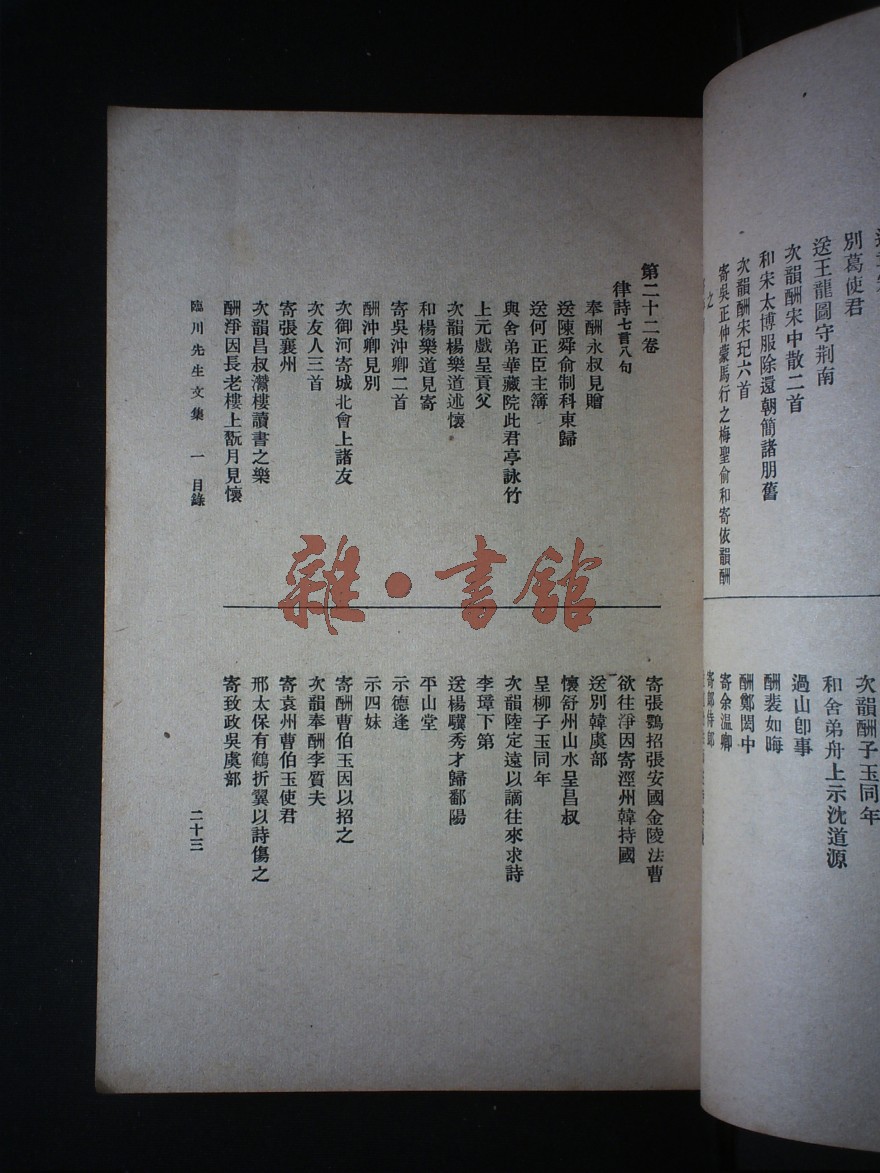 別葛使君
送王龍圖守荆南
次韻酬宋中散二首
和宋太博服除還朝簡諸朋舊
次韻酬宋玘六首
寄吳正仲蒙馬行之梅聖俞和寄依韻酬
之
次韻酬子玉同年
和舍弟舟上示沈道源
過山卽事
酬裴如晦
酬鄭閎中
寄余溫卿
第二十二卷
律詩七言八句
奉酬永叔見贈
送陳舜俞制科東歸
送何正臣主簿
與舍弟華藏院此君亭詠竹
上元戲呈貢父
次韻楊樂道述懷
和楊樂道見寄
寄吳沖卿二首
酬沖卿見別
次御河寄城北會上諸友
次友人三首
寄張襄州
次韻昌叔灊樓讀書之樂
酬淨因長老樓上翫月見懷
寄張鄂招張安國金陵法曹
欲往淨因寄涇州韓持國
送別韓虞部
懷舒州山水呈昌叔
呈柳子玉同年
次韻陸定遠以謫往來求詩
李璋下第
送楊驥秀才歸鄱陽
平山堂
示德逢
示四妹
寄酬曹伯玉因以招之
次韻奉酬李質夫
寄袁州曹伯玉使君
邢太保有鶴折翼以詩傷之
寄致政吳虞部
臨川先生文集 一 目錄
二十三
雜·書館